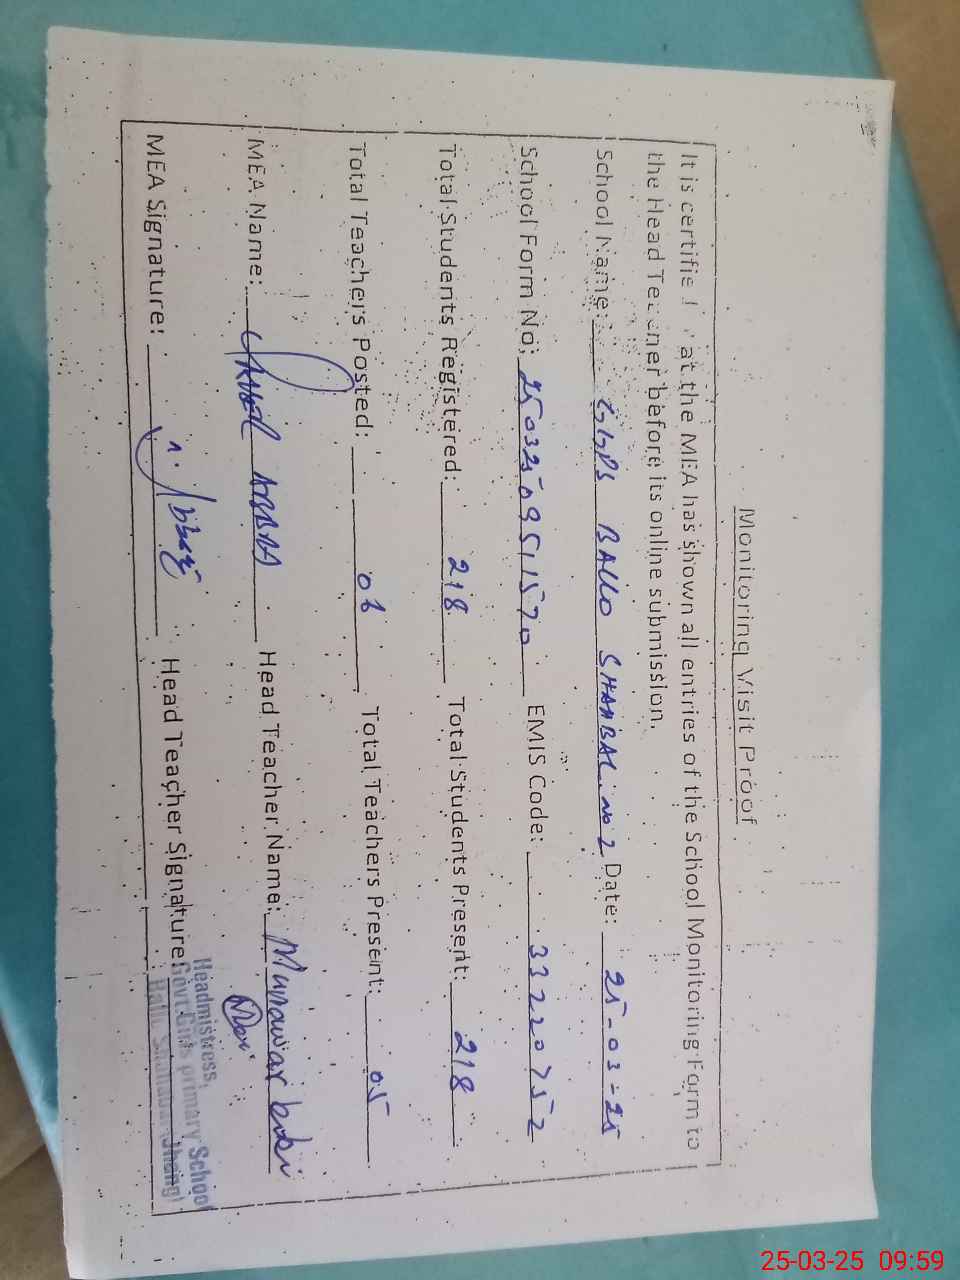 Monitoring Visit Proof
It is certifie at the MEA has shown all entries of the School Monitoring Form to
the Head Teacher before its online submission.
School Name: GGPS BALLO SHAHBAL. No 2 Date: 25-03-25
School Form No; 25032509511570 EMIS Code: 33220752
Total Students Registered: 218 Total Students Present: 218
Total Teachers Posted: 06 Total Teachers Present: 05
MEA Name: ABBAS Head Teacher Name: Munawar
MEA Signature: Head Teacher Signature:
Headmistress,
Govt.Girls primary School
25-03-25 09:59